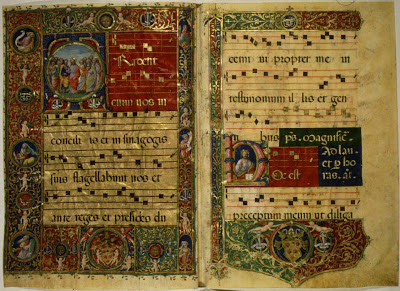 Radent
enim nos in
concilijs et in sinagogis
suis flagellabunt nos et
ante reges et presides du
cemini propter me in
testimonium illis et gen
bus ps. Magnific.
Ad lau
et p ho
ras. añ.
Hoc est
preceptum meum ut diliga